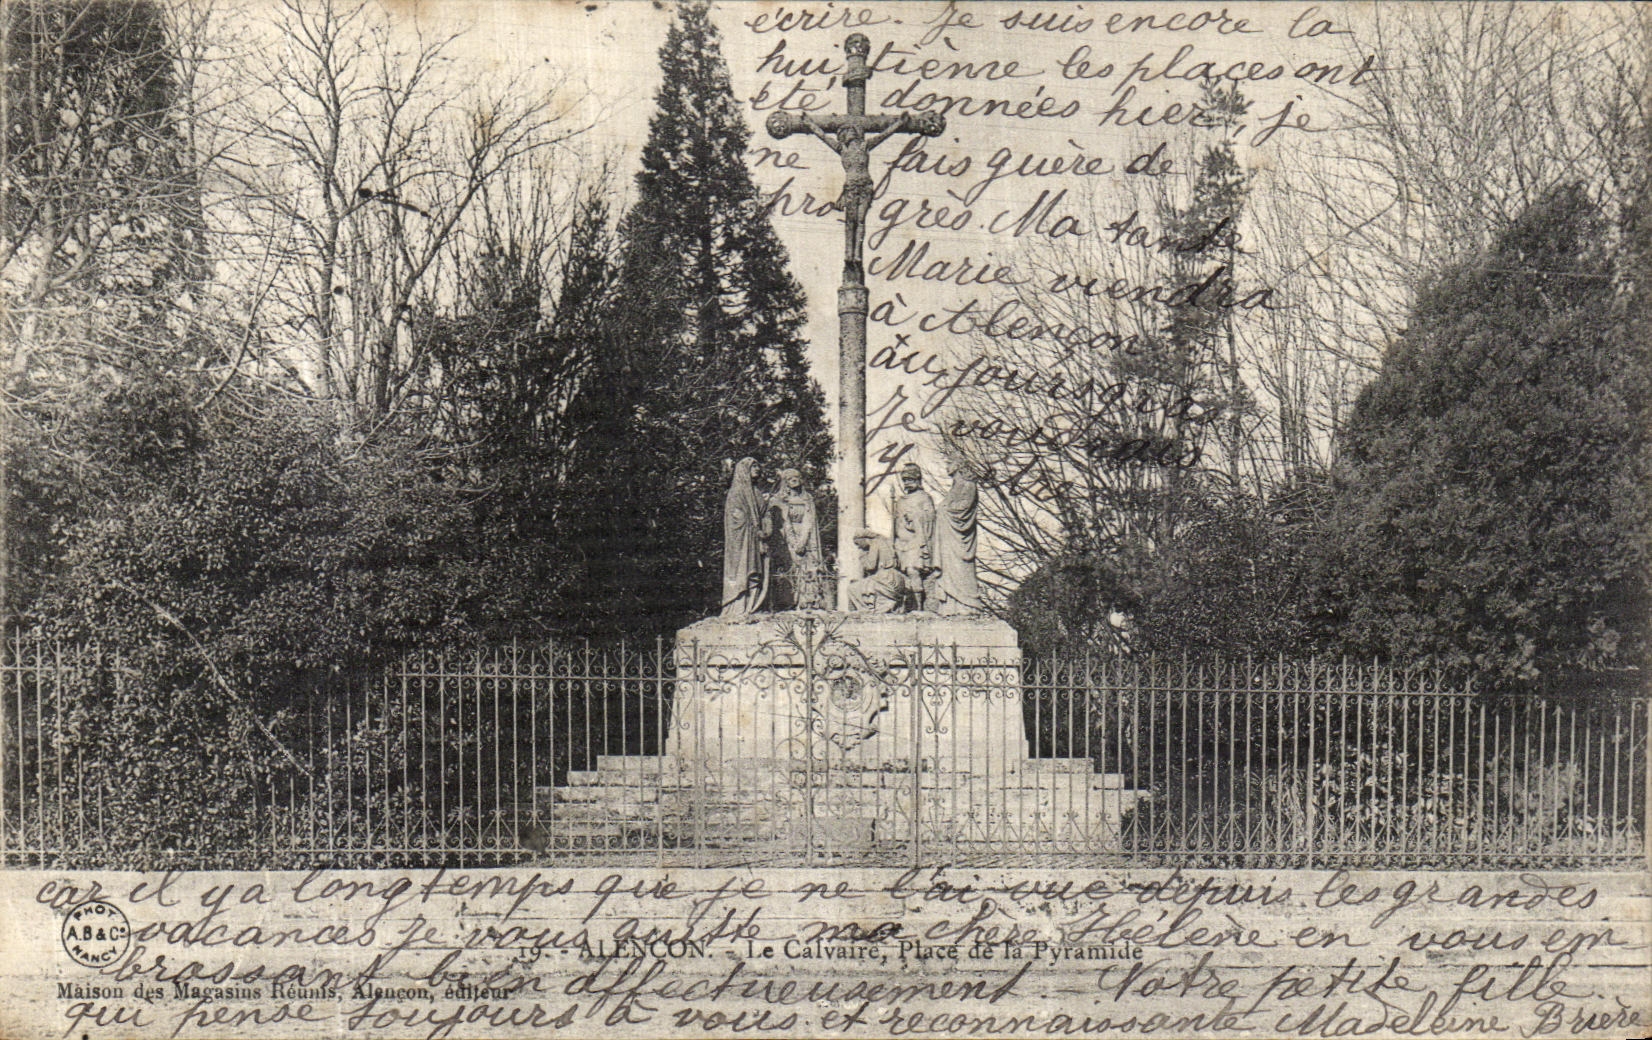 écrire. Je suis encore la
huitième les places ont
été données hier, je
ne fais guère de
progrès. Ma tante
Marie viendra
à Alençon
aux jours gras
Je voudrais
y être
car il y a longtemps que je ne l'ai vue depuis les grandes
vacances je vous quitte ma chère Hélène en vous em
19. - ALENÇON. - Le Calvaire, Place de la Pyramide
brassant bien affectueusement. - Votre petite fille
Maison des Magasins Réunis, Alençon, éditeur
qui pense toujours à vous et reconnaissante Madeleine Brière
PHOT
A.B & Cº
NANCY